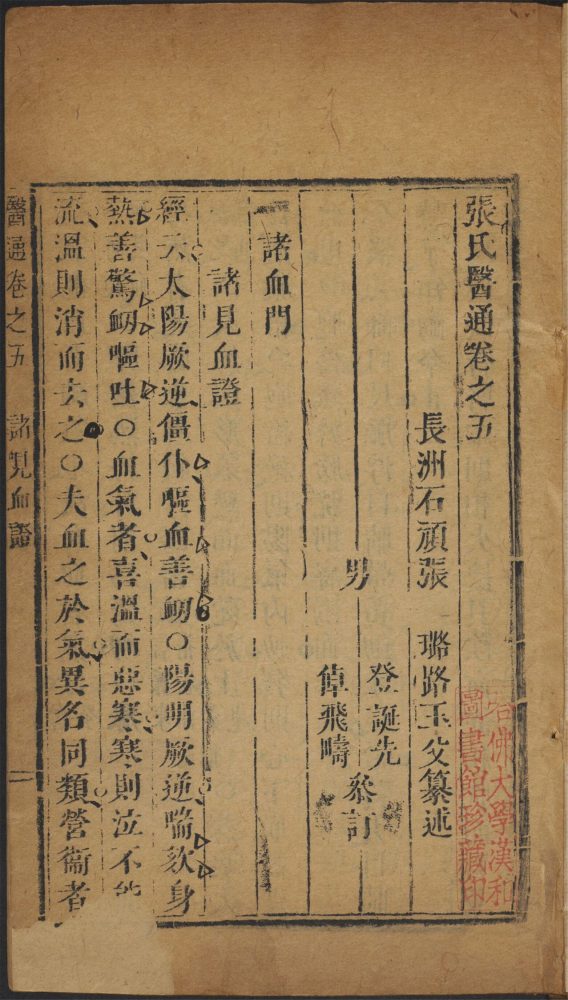 張氏醫通卷之五
長洲石頑張 璐路玉父纂述
男
登誕先
倬飛疇
叅訂
諸血門
諸見血證
經云太陽厥逆僵仆嘔血善衂○陽明厥逆喘欬身
熱善驚衂嘔吐○血氣者喜溫而惡寒寒則泣不
流溫則消而去之○夫血之於氣異名同類營衞者
醫通卷之五 諸見血證 一
哈佛大學漢和
圖書館珍藏印